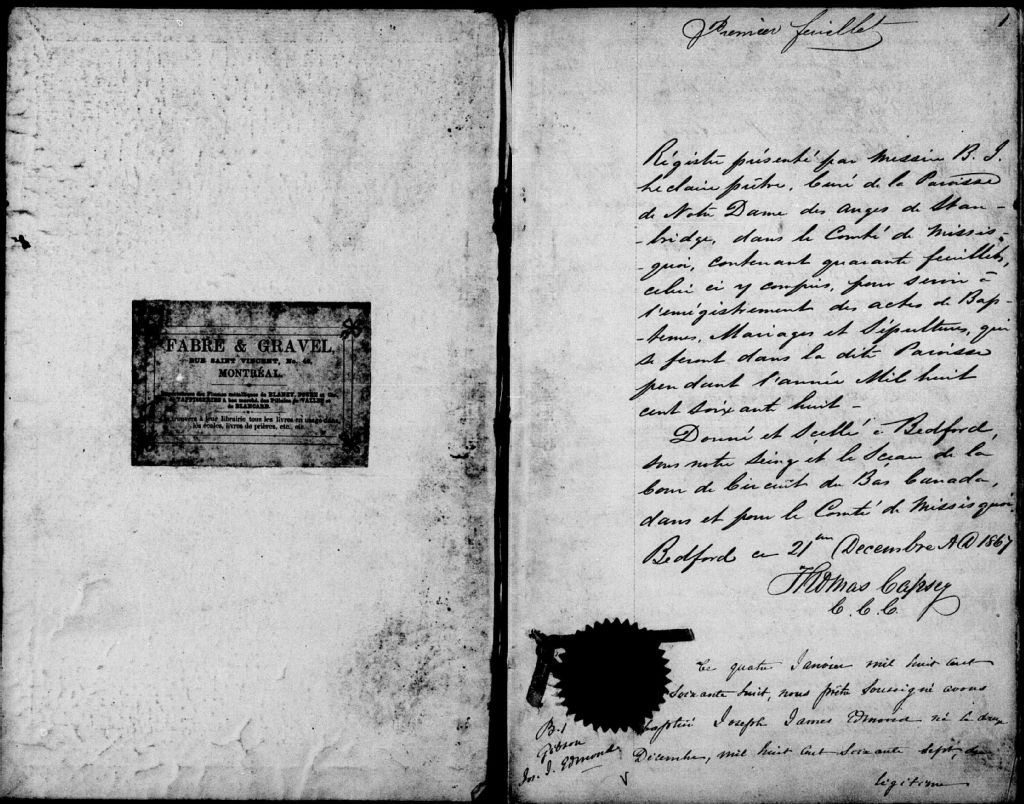 FABRE & GRAVEL,
RUE SAINT VINCENT, No.
MONTRÉAL.
des Plumes métalliques de BLANZY, et Cie,
à bon marché, des Pélerins de
de BLANCARD.
à leur librairie tous les livres en usage dans
les écoles, livres de prières, etc., etc.
Premier feuillet
1
Régistre présenté par Messire B. J.
Leclaire prêtre, Curé de la Paroisse
de Notre Dame des anges de Stan-
-bridge, dans le Comté de Missis-
-quoi, contenant quarante feuillets,
celui ci y compris, pour servir à
l'enrégistrement des actes de Bap-
-temes, Mariages et Sépultures, qui
se feront dans la dite Paroisse
pendant l'année Mil huit
cent soixante huit -
Donné et Scellé à Bedford,
sous notre Seing et le Sceau de la
Cour de Circuit du Bas Canada,
dans et pour le Comté de Missisquoi.
Bedford ce 21 Decembre AD 1867
Thomas Capsey
C. C. C.
Ce quatre Janvier mil huit cent
soixante huit, nous prêtre soussigné avons
baptisé Joseph James Edmond né le
Décembre, mil huit cent soixante sept, du
légitime
B. 1
Gibson
Jos. J. Edmond